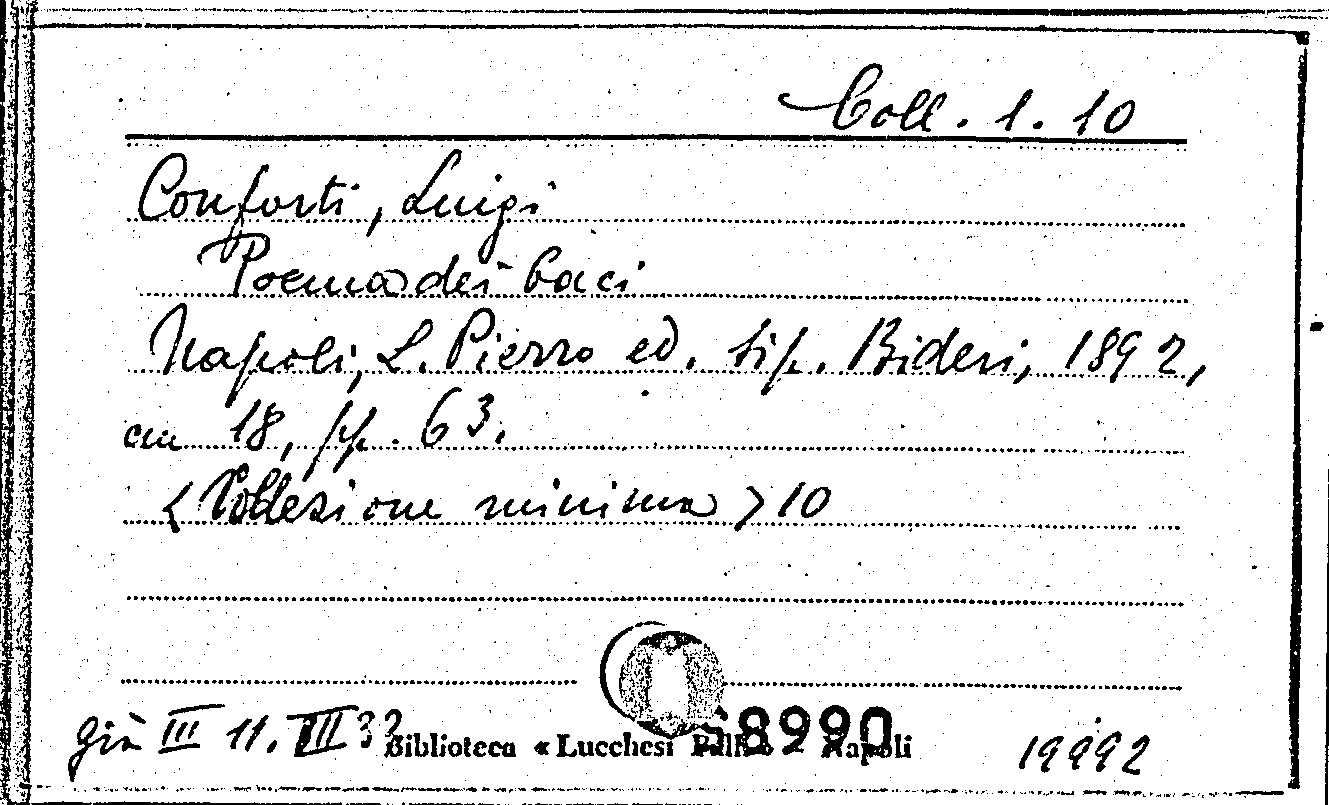 Coll. 1. 10
Conforti, Luigi
Poema dei baci
Napoli, L. Pierro ed. tip. Bideri, 1892,
cm 18, pp. 63.
< Collezione minima > 10
già III 11. VII 32
Biblioteca « Lucchesi Palli » - Napoli
68990
19992